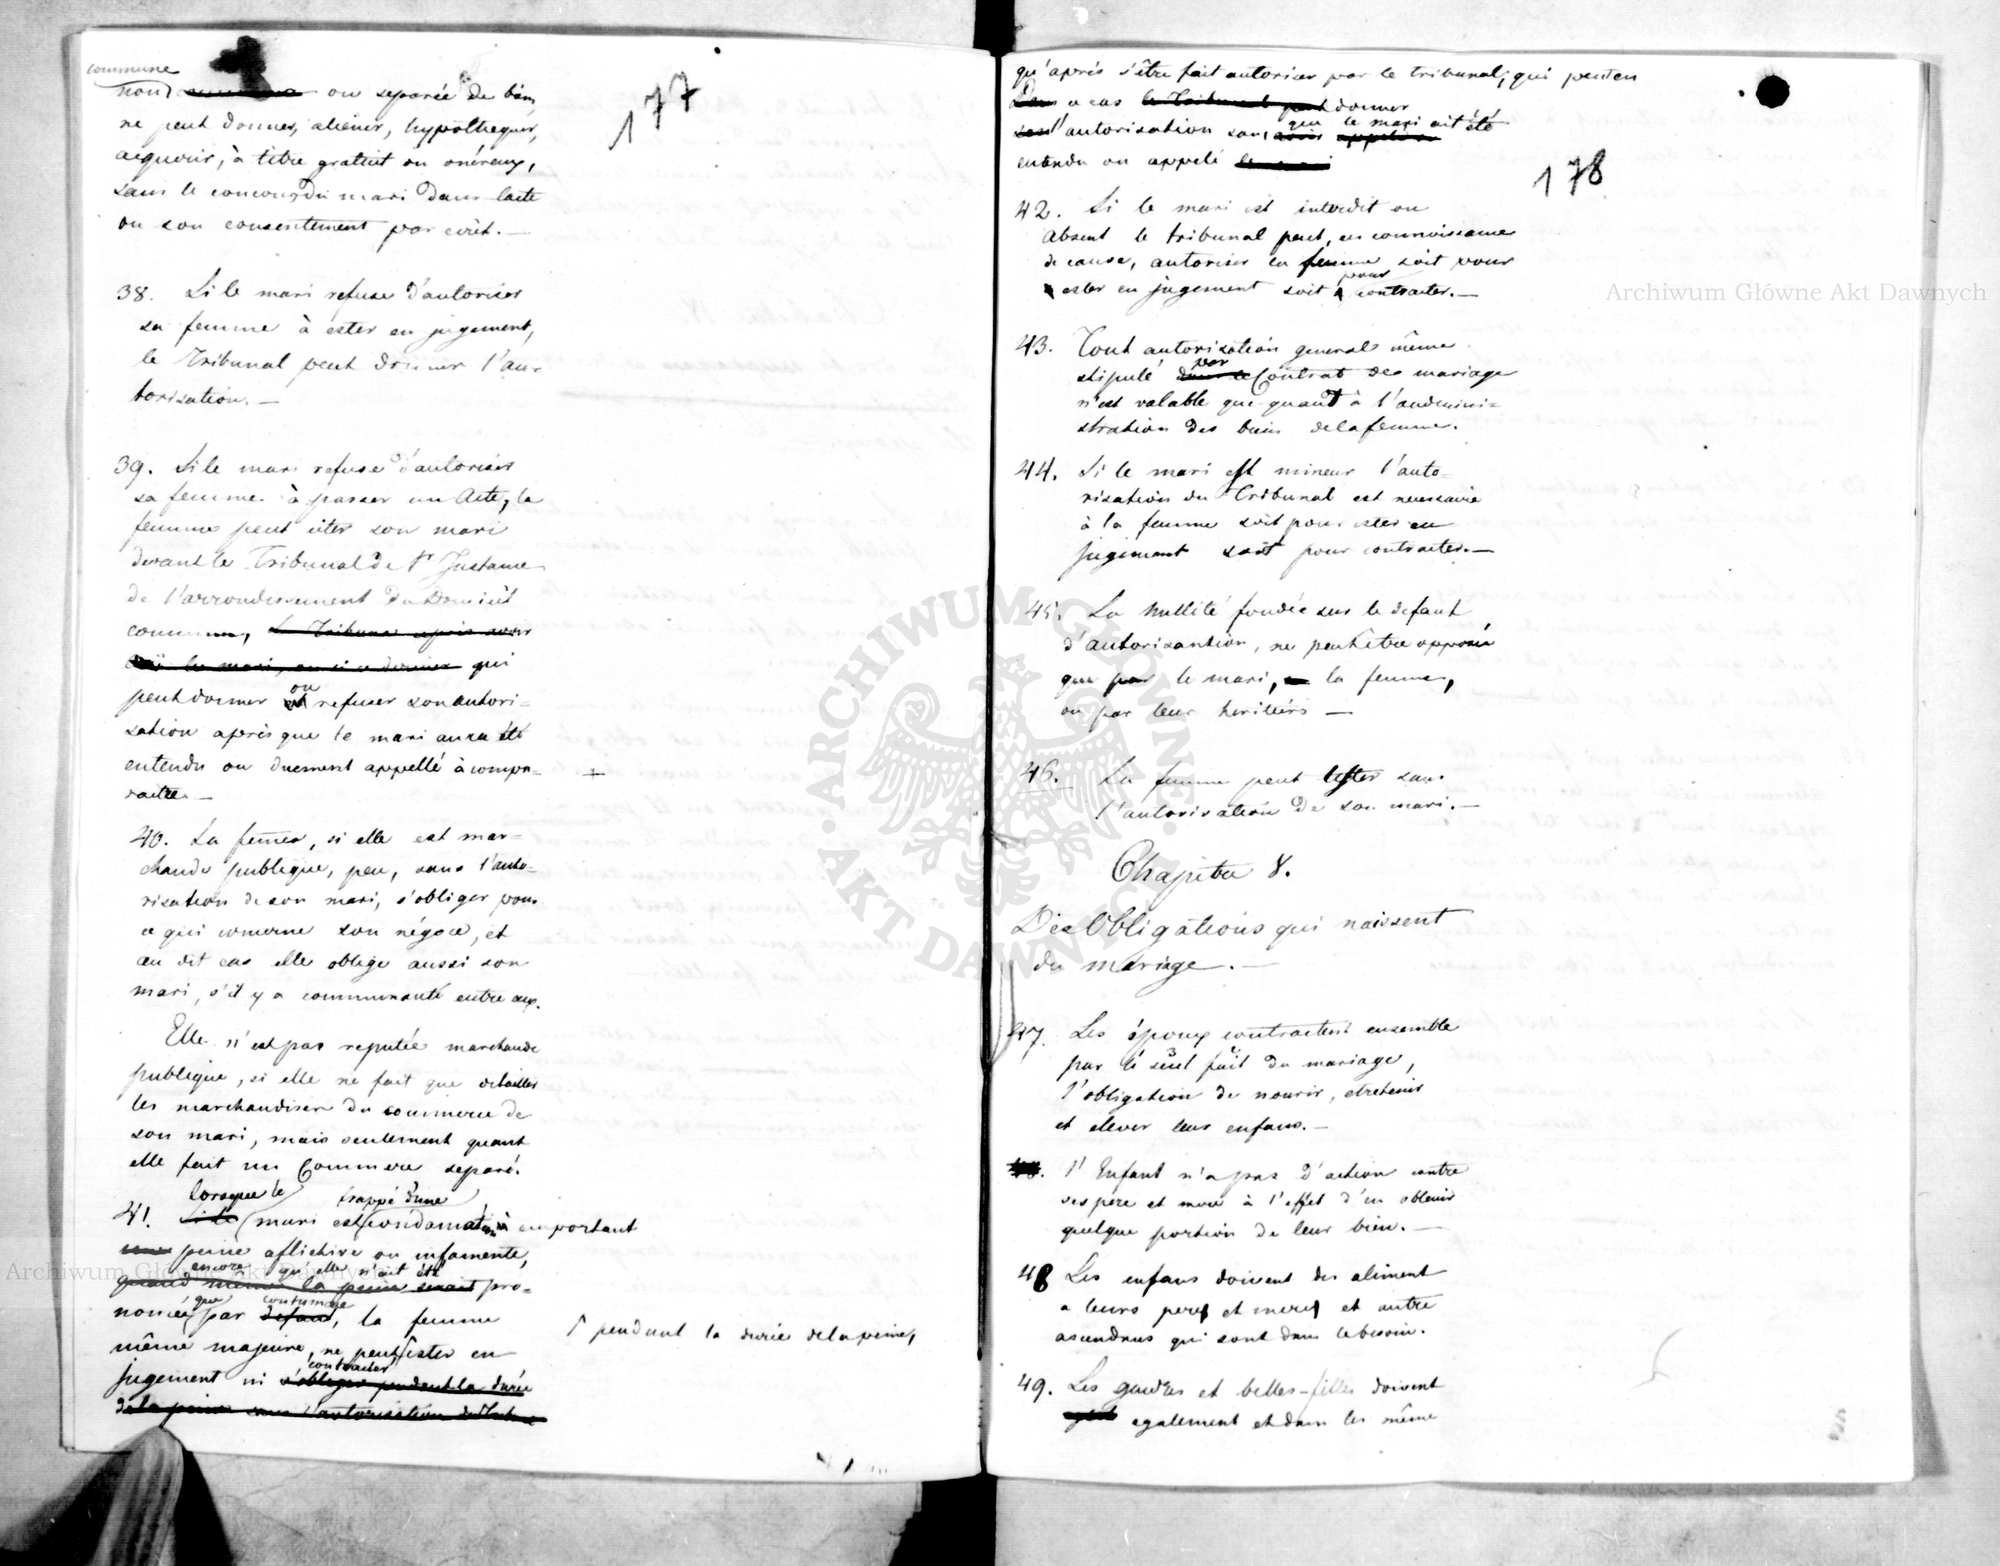 177
commune
non ou separée de bien
ne peut donner, aliéner, hypothequer,
acquerir, à titre gratuit ou onéreux,
sans le concours du mari dans l'acte
ou son consentement par ecrit. —
38. Si le mari refuse d'autoriser
sa femme à ester en jugement,
le Tribunal peut donner l'au-
torisation. —
39. Si le mari refuse d'autoriser
sa femme à passer un Acte, la
femme peut citer son mari
devant le Tribunal de 1r Instance
de l'arrondissement du Domicil
commun, le Tribunal après avoir
ouï le mari, ou si ce dernier qui
peut donner ou refuser son autori-
sation après que le mari aura été
entendu ou duement appellé à compa-
raitre. —
40. La femme, si elle est mar-
chande publique, peu, sans l'auto-
risation de son mari, s'obliger pour
ce qui concerne son négoce, et
au dit cas elle oblige aussi son
mari, s'il y a communauté entre eux.
Elle n'est pas reputée marchande
publique, si elle ne fait que detailler
les marchandises du commerce de
son mari, mais seulement quant
elle fait un Commerce separé.
lorsque le frappé d'une
41. Si le mari est condamnation emportant
une peine aflictive ou infamente,
encore qu'elle n'ait été
quand même la peine serait pro-
que contumace
noncée par defaut, la femme
même majeure, ne peut ester en
contracter
jugement ni s'obliger pendant la durée
de la peine sans l'autorisation du
pendant la durée de la peine,
178
qu'après s'être fait autoriser par le tribunal, qui peut en
ce cas le Tribunal peut donner
que le mari ait été
l'autorisation sans avoir appelé
entendu ou appelé le mari
42. Si le mari est interdit ou
absent le tribunal peut, en connoissance
de cause, autoriser la femme soit pour
pour
ester en jugement soit à contracter. —
43. Tout autorisation general même
par
stipulé dans le Contrat des mariage
n'est valable que quant à l'adminini-
stration des biens de la femme.
44. Si le mari est mineur l'auto-
risation du Tribunal est necessaire
à la femme soit pour ester en
jugement soit pour contracter. —
45. La Nullité fondée sur le defaut
d'autorisantion, ne peut être opposée
que par le mari, la femme,
ou par leur heritiers —
46. La femme peut tester sans
l'autorisation de son mari. —
Chapitre 8.
Des Obligations qui naissent
du mariage. —
47. Les époux contractent ensemble
par le seul fait du mariage,
l'obligation de nourir, etretenir
et elever leur enfans. —
l'Enfant n'a pas d'action contre
ses père et mere à l'effet d'en obtenir
quelque portion de leur bien. —
48 Les enfans doivent des aliment
a leurs pere et mere et autre
ascendans qui sont dans le besoin.
49. Les gendres et belles-filles doivent
egalement et dans les même
Archiwum Główne Akt Dawnych
Archiwum Główne Akt Dawnych
ARCHIWUM GŁÓWNE AKT DAWNYCH